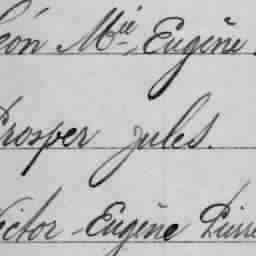 Léon Mie, Eugène
Prosper Jules.
Victor-Eugène Pierre